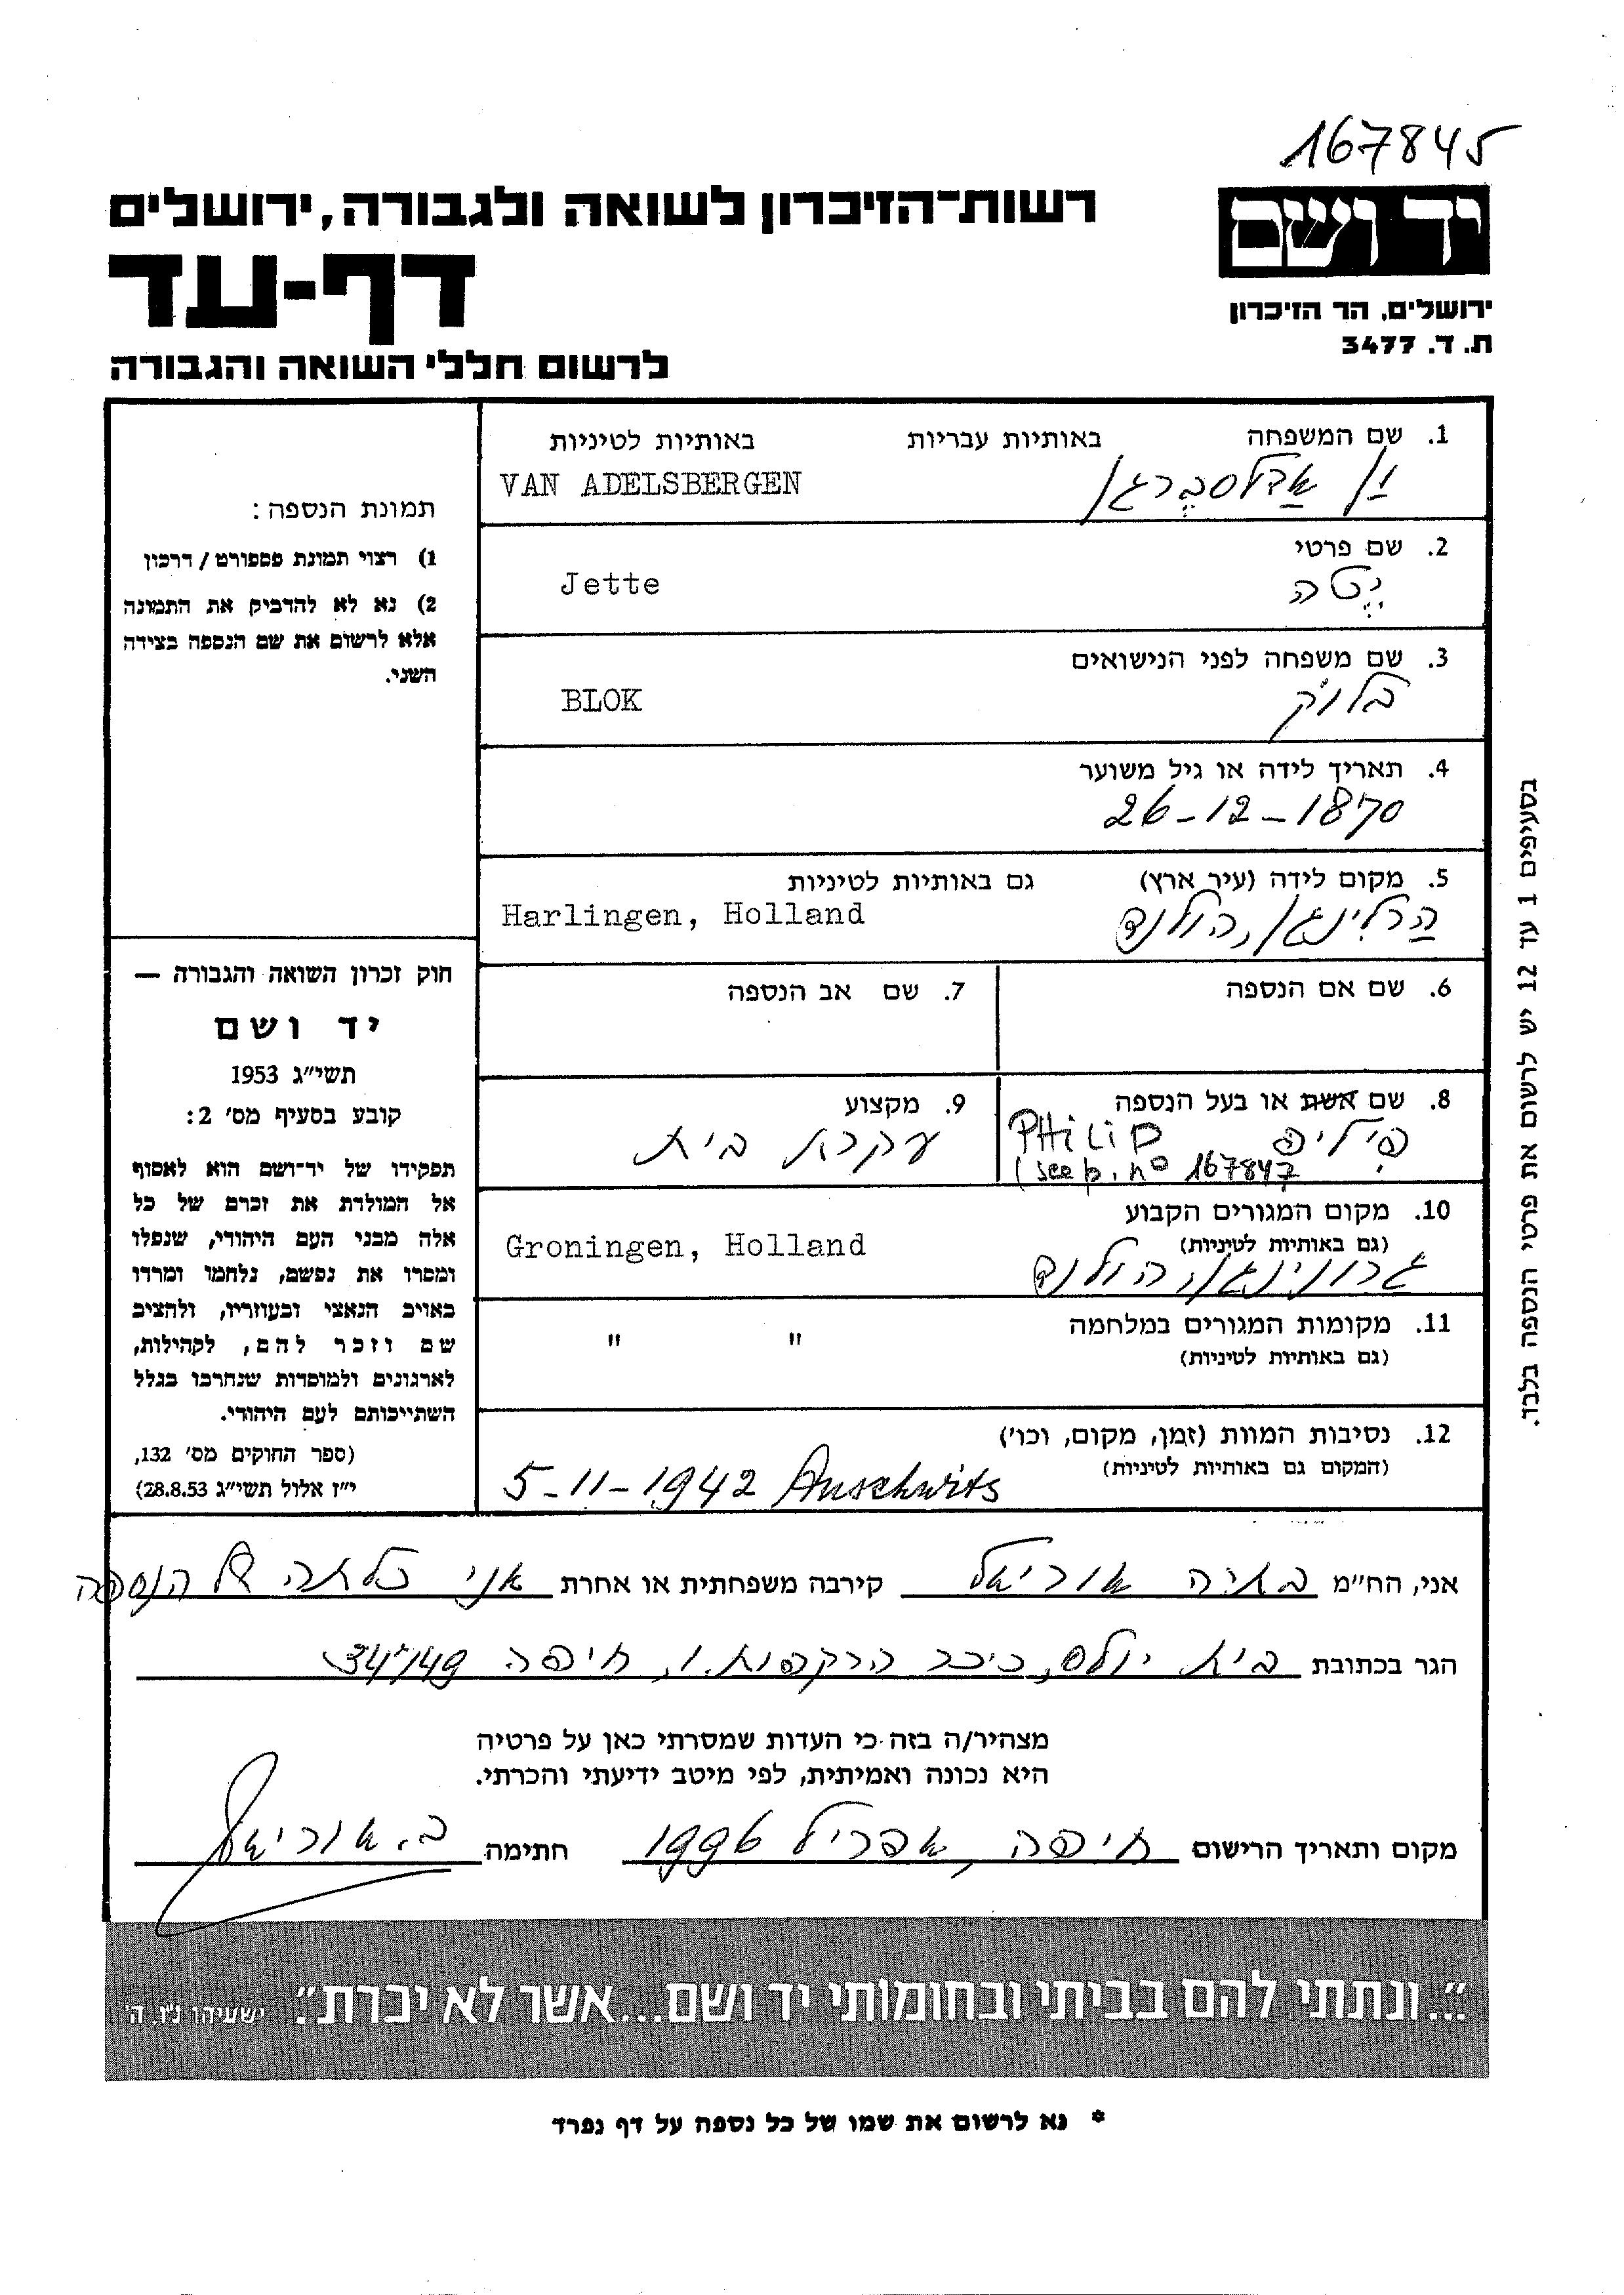 167845
יד ושם
רשות-הזיכרון לשואה ולגבורה, ירושלים
דף-עד
לרשום חללי השואה והגבורה
ירושלים, הר הזיכרון
ת. ד. 3477
תמונת הנספה:
1) רצוי תמונת פספורט / דרכון
2) נא לא להדביק את התמונה
אלא לרשום את שם הנספה בצידה
השני.
חוק זכרון השואה והגבורה —
יד ושם
תשי״ג 1953
קובע בסעיף מס׳ 2:
תפקידו של יד-ושם הוא לאסוף
אל המולדת את זכרם של כל
אלה מבני העם היהודי, שנפלו
ומסרו את נפשם, נלחמו ומרדו
באויב הנאצי ובעוזריו, ולהציב
שם וזכר להם, לקהילות,
לארגונים ולמוסדות שנחרבו בגלל
השתייכותם לעם היהודי.
(ספר החוקים מס׳ 132,
י״ז אלול תשי״ג 28.8.53)
1. שם המשפחה באותיות עבריות באותיות לטיניות
וַן אַדלסבֶרגן VAN ADELSBERGEN
2. שם פרטי
יֶטה Jette
3. שם משפחה לפני הנישואים
בלוק BLOK
4. תאריך לידה או גיל משוער
26-12-1870
5. מקום לידה (עיר ארץ) גם באותיות לטיניות
הַרלִינגן, הולנד Harlingen, Holland
6. שם אם הנספה 7. שם אב הנספה
8. שם אשת או בעל הנספה 9. מקצוע
פִילִיפ PHILIP עקרת בית
(see p. no 167847
10. מקום המגורים הקבוע
(גם באותיות לטיניות)
גרונינגן, הולנד Groningen, Holland
11. מקומות המגורים במלחמה
" "
(גם באותיות לטיניות)
12. נסיבות המוות (זמן, מקום, וכו׳)
(המקום גם באותיות לטיניות)
5-11-1942 Auschwits
אני, הח״מ בתיה אוריאל קירבה משפחתית או אחרת אני כלתה של הנספה
הגר בכתובת בית יולס, כיכר הרקפות 1, חיפה 34749
מצהיר/ה בזה כי העדות שמסרתי כאן על פרטיה
היא נכונה ואמיתית, לפי מיטב ידיעתי והכרתי.
מקום ותאריך הרישום חיפה, אפריל 1996 חתימה ב. אוריאל
"...ונתתי להם בביתי ובחומותי יד ושם...אשר לא יכרת". ישעיהו נ״ו, ה׳
* נא לרשום את שמו של כל נספה על דף נפרד
בסעיפים 1 עד 12 יש לרשום את פרטי הנספה בלבד.